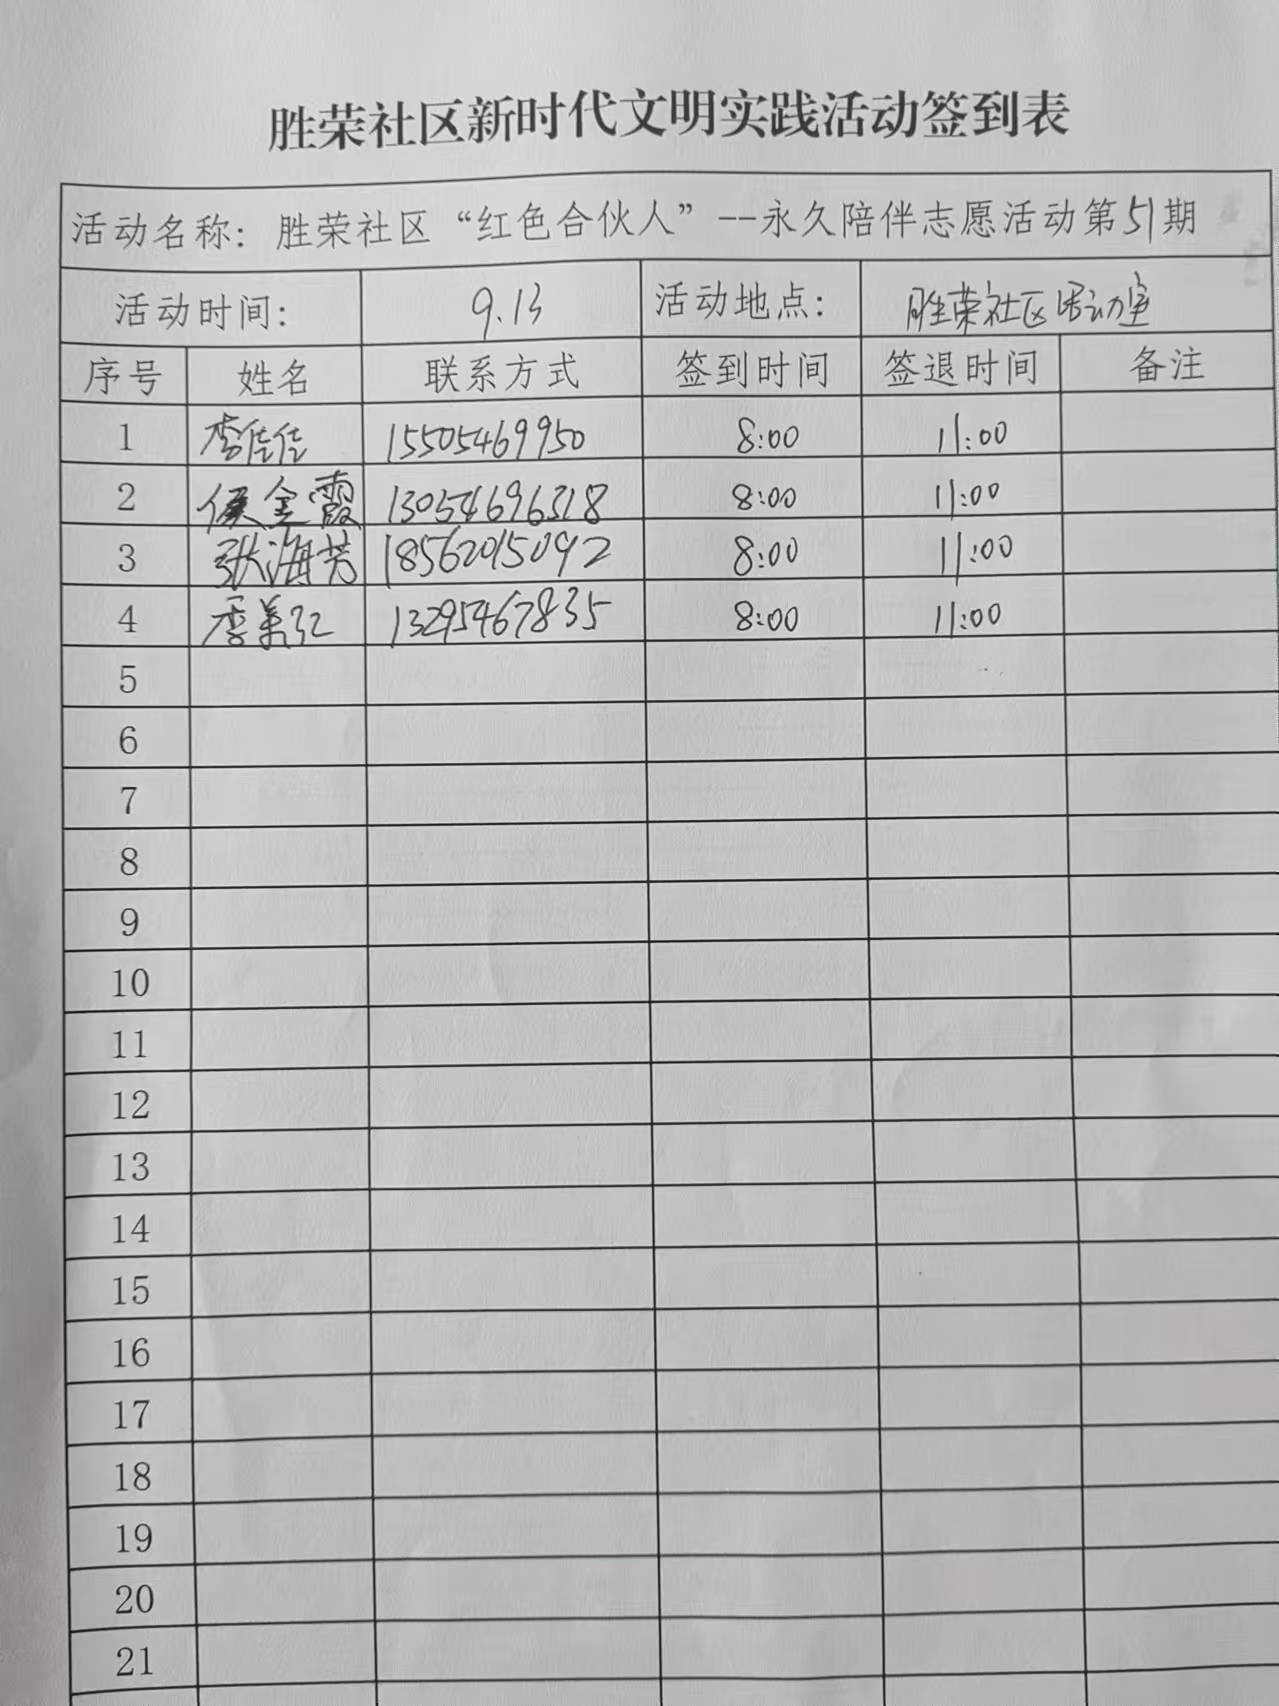 胜荣社区新时代文明实践活动签到表
活动名称：胜荣社区“红色合伙人”--永久陪伴志愿活动第51期
活动时间： 9.13 活动地点： 胜荣社区活动室
序号 姓名 联系方式 签到时间 签退时间 备注
1 李佳佳 15505469950 8:00 11:00
2 侯金霞 13054696318 8:00 11:00
3 张海芳 18562015092 8:00 11:00
4 李美红 13295467835 8:00 11:00
5
6
7
8
9
10
11
12
13
14
15
16
17
18
19
20
21